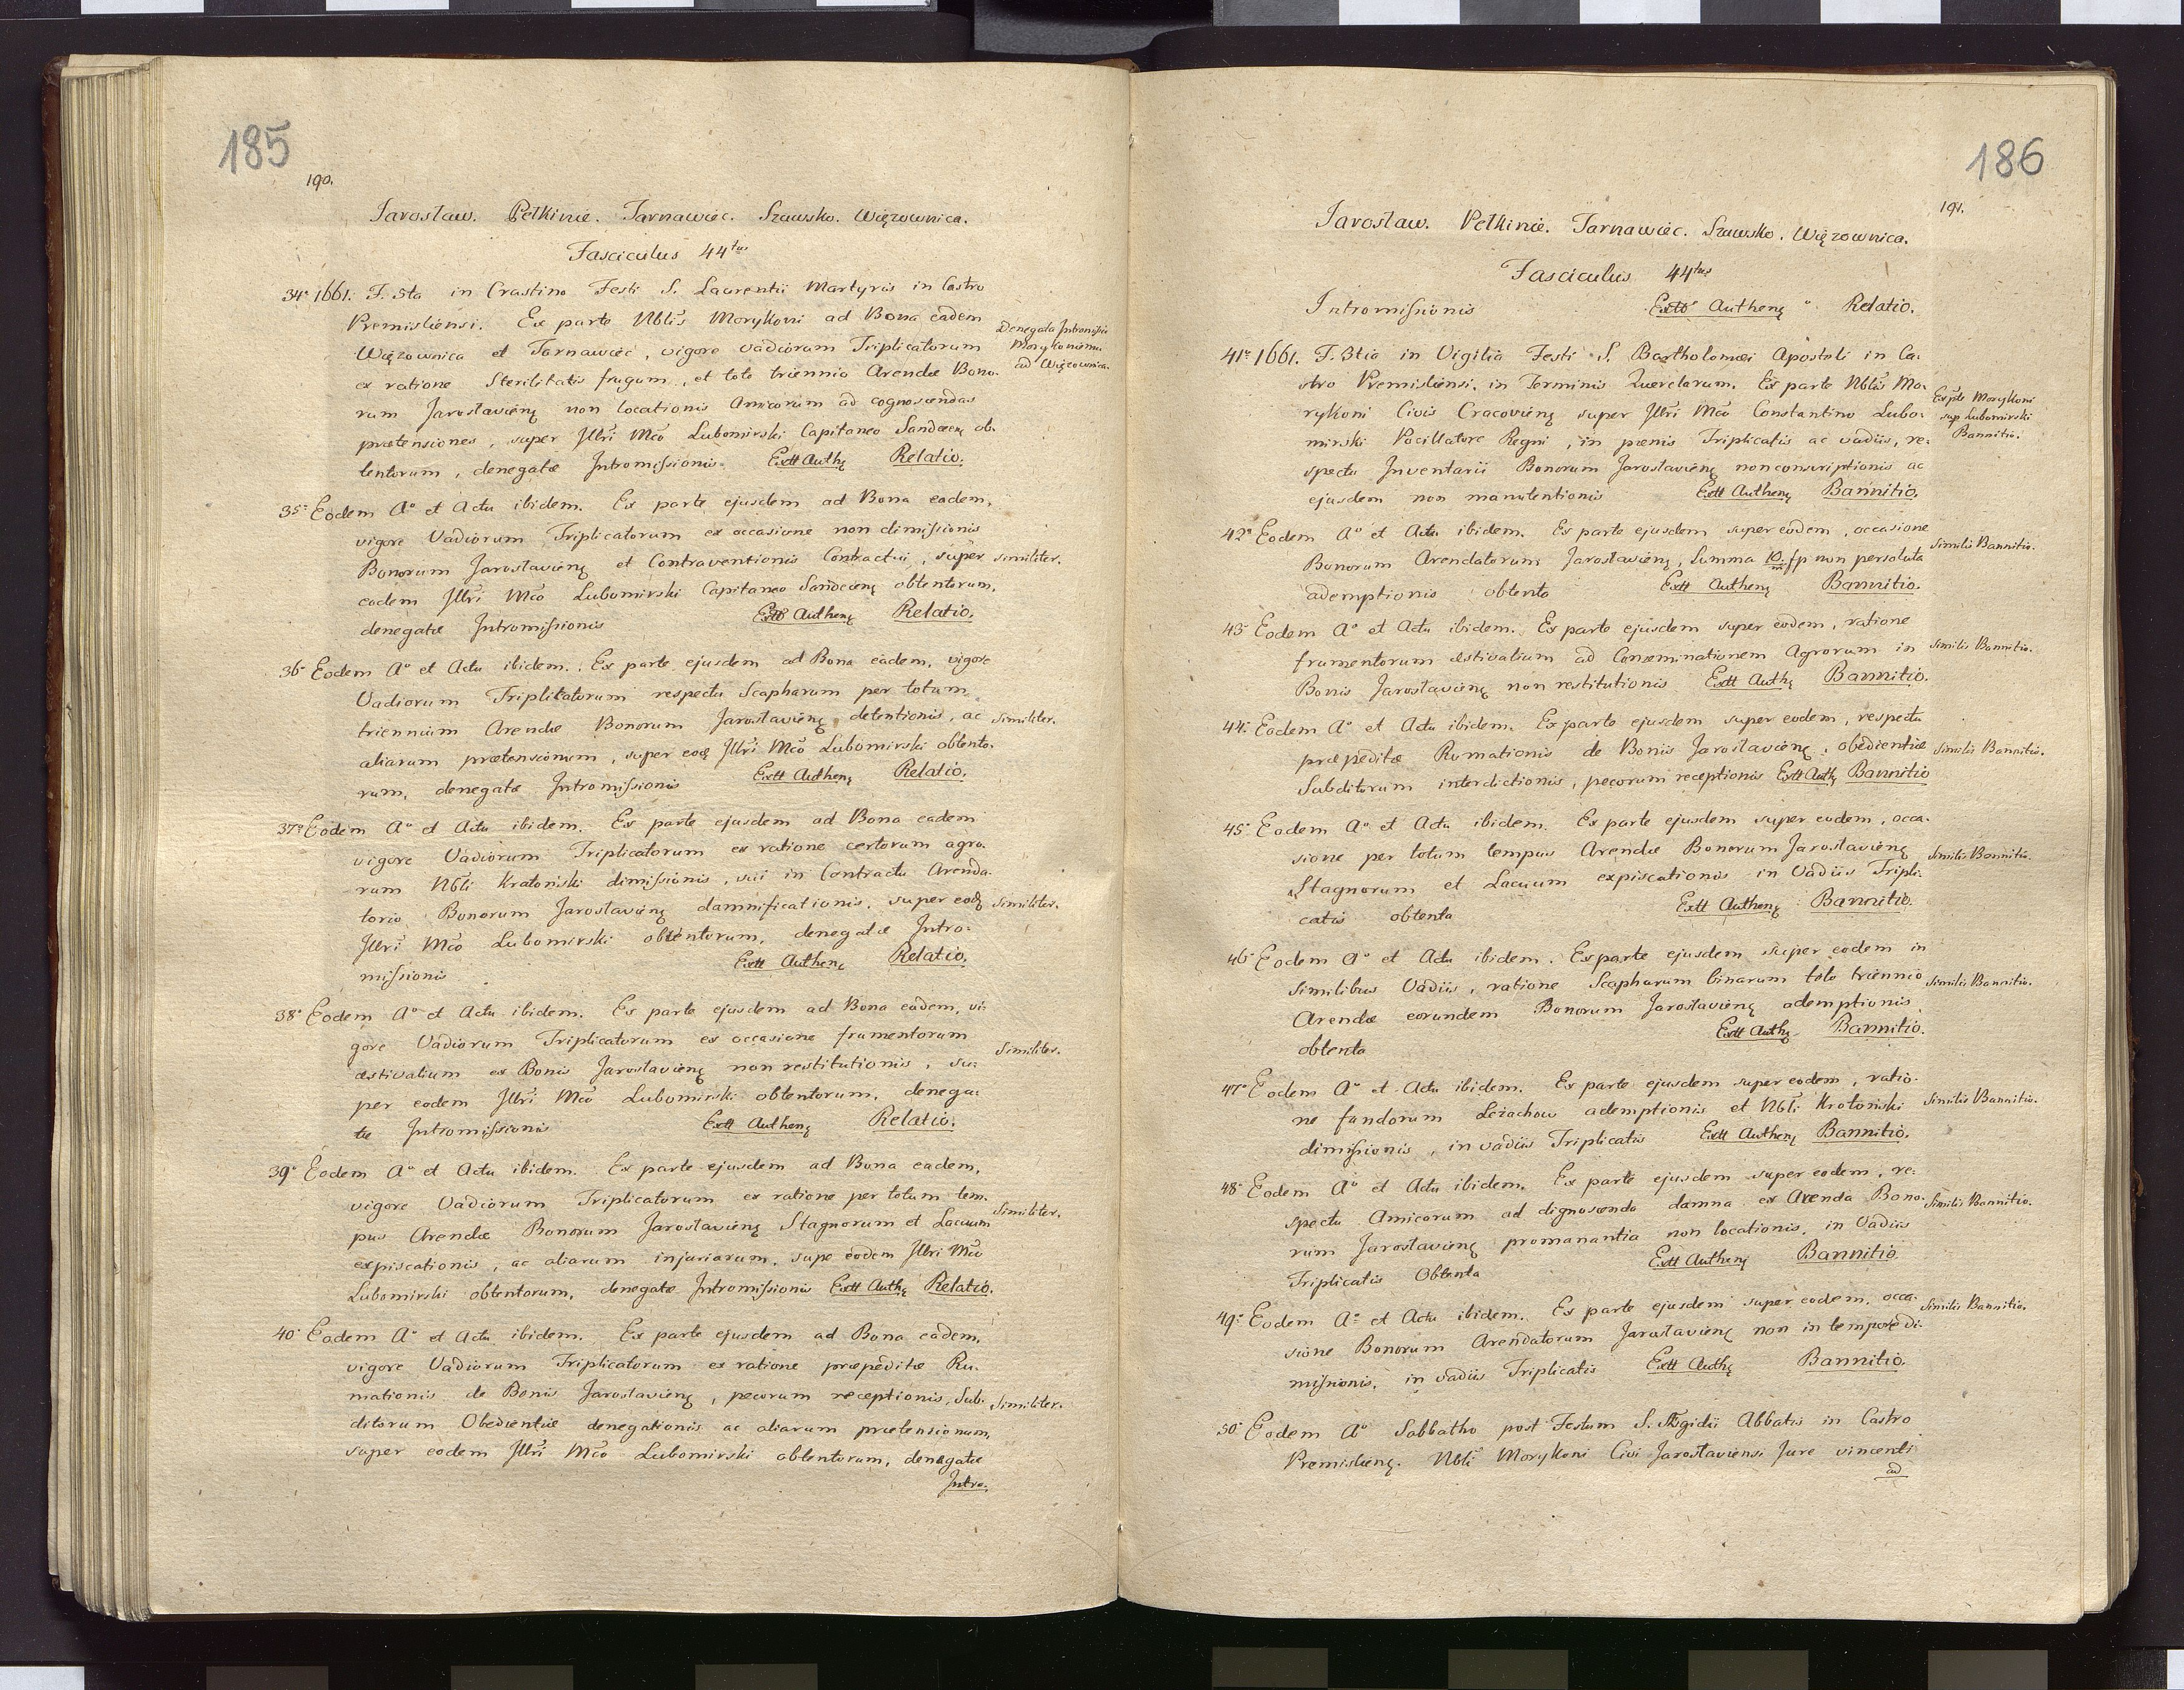 185
190.
Jarosław. Pełkinie. Tarnawiec. Szawsko. Więzownica.
Fasciculus 44tus
34° 1661. F. 5ta in Crastino Festi S. Laurentii Martyris in Castro
Premisliensi. Ex parte Nblis Morykoni ad Bona eadem
Więzownica et Tarnawiec, vigore vadiorum Triplicatorum
ex ratione Sterilitatis frugum, et toto triennio Arendæ Bono-
rum Jaroslavieng non locationis Amicorum ad cognoscendas
prætensiones, super Jllri Mco Lubomirski Capitaneo Sandeceng ob-
tentorum, denegatæ Intromissionis. Extt Authg Relatio.
Denegata Intromissio
Morykoniemu
ad Więzownica.
35° Eodem A° et Actu ibidem. Ex parte ejusdem ad Bona eadem,
vigore Vadiorum Triplicatorum ex occasione non dimissionis
Bonorum Jaroslavieng et Contraventionis Contractui, super
eodem Jllri Mco Lubomirski Capitaneo Sandecieng obtentorum,
denegatæ Intromissionis Extt Autheng Relatio.
similiter.
36° Eodem A° et Actu ibidem. Ex parte ejusdem ad Bona eadem, vigore
Vadiorum Triplicatorum respectu Scapharum per totum
triennium Arendæ Bonorum Jaroslavieng detentionis, ac
aliarum prætensionum, super eodg Jllri Mco Lubomirski obtento-
rum, denegatæ Intromissionis Extt Autheng Relatio.
similiter.
37° Eodem A° et Actu ibidem. Ex parte ejusdem ad Bona eadem
vigore Vadiorum Triplicatorum ex ratione certorum agro-
rum Nbli Kratoński dimissionis, sui in Contractu Arenda-
torio Bonorum Jaroslavieng damnificationis, super eodg
Jllri Mco Lubomirski obtentorum, denegatæ Intro-
missionis Extt Autheng Relatio.
similiter.
38° Eodem A° et Actu ibidem. Ex parte ejusdem ad Bona eadem, vi-
gore Vadiorum Triplicatorum ex occasione frumentorum
æstivalium ex Bonis Jaroslavieng non restitutionis, su-
per eodem Jllri Mco Lubomirski obtentorum, denega-
tæ Intromissionis Extt Autheng Relatio.
Similiter.
39° Eodem A° et Actu ibidem. Ex parte ejusdem ad Bona eadem,
vigore Vadiorum Triplicatorum ex ratione per totum tem-
pus Arendæ Bonorum Jaroslavieng Stagnorum et Lacuum
expiscationis, ac aliarum injuriarum, supe eodem Jllri Mco
Lubomirski obtentorum, denegatæ Intromissionis Extt Authg Relatio.
similiter.
40° Eodem A° et Actu ibidem. Ex parte ejusdem ad Bona eadem,
vigore Vadiorum Triplicatorum ex ratione præpeditæ Ru-
mationis de Bonis Jaroslavieng, pecorum receptionis, Sub-
ditorum Obedientiæ denegationis ac aliarum prætensionum,
super eodem Jllri Mco Lubomirski obtentorum, denegatæ
Intro-
similiter.
186
191.
Jarosław. Pełkinie. Tarnawiec. Szawsko. Więzownica.
Fasciculus 44tus
Intromissionis Extt Autheng Relatio.
41° 1661. F. 3tia in Vigilia Festi S. Bartholomæi Apostoli in Ca-
stro Premisliensi, in Terminis Querelarum. Ex parte Nblis Mo-
rykoni Civis Cracovieng super Jllri Mco Constantino Lubo-
mirski Pocillatore Regni, in pænis Triplicatis ac vadiis, re-
spectu Inventarii Bonorum Jaroslavieng non conscriptionis ac
ejusdem non manutentionis Extt Autheng Bannitio.
Ex pte Morykoni
sup Lubomirski
Bannitio.
42° Eodem A° et Actu ibidem. Ex parte ejusdem super eodem, occasione
Bonorum Arendatorum Jaroslavieng, Summa 10 m fp non persoluta
ademptionis obtenta Extt Autheng Bannitio.
similis Bannitio.
43° Eodem A° et Actu ibidem. Ex parte ejusdem super eodem, ratione
frumentorum æstivalium ad Conseminationem Agrorum in
Bonis Jaroslavieng non restitutionis Extt Authg Bannitio.
similis Bannitio.
44° Eodem A° et Actu ibidem. Ex parte ejusdem super eodem, respectu
præpeditæ Rumationis de Boniis Jaroslavieng, obedientiæ
Subditorum interdictionis, pecorum receptionis Extt Authg Bannitio
similis Bannitio.
45° Eodem A° et Actu ibidem. Ex parte ejusdem super eodem, occa-
sione per totum tempus Arendæ Bonorum Jaroslavieng
Stagnorum et Lacuum expiscationis in Vadiis Tripli-
catis obtenta Extt Autheng Bannitio.
similis Bannitio.
46° Eodem A° et Actu ibidem. Ex parte ejusdem super eodem in
similibus Vadiis, ratione Scapharum binarum toto triennio
Arendæ eorundem Bonorum Jaroslavieng ademptionis
obtenta Extt Authg Bannitio.
similis Bannitio.
47° Eodem A° et Actu ibidem. Ex parte ejusdem super eodem, ratio-
ne fundorum Leżachow ademptionis et Nbli Krotoński
dimissionis, in vadiis Triplicatis Extt Autheng Bannitio.
similis Bannitio.
48° Eodem A° et Actu ibidem. Ex parte ejusdem super eodem, re-
spectu Amicorum ad dignoscenda damna ex Arenda Bono-
rum Jaroslavieng promanantia non locationis, in Vadiis
Triplicatis Obtenta Extt Autheng Bannitio
similis Bannitio.
49° Eodem A° et Actu ibidem. Ex parte ejusdem super eodem, occa-
sione Bonorum Arendatorum Jaroslavieng non in tempore di-
missionis, in vadiis Triplicatis Extt Authg Bannitio.
similis Bannitio.
50° Eodem A° Sabbatho post Festum S. Ægidii Abbatis in Castro
Premislieng. Nbli Morykoni Civi Jaroslaviensi Jure vincenti
ad